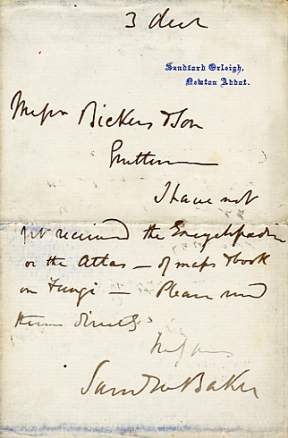 3 Decr
Sandford Orleigh,
Newton Abbot.
Messrs Bickers & Son
Gentlemen
I have not
yet received the Encyclopædia
or the Atlas — of maps & book
on Fungi — Please send
them directly
Saml W Baker